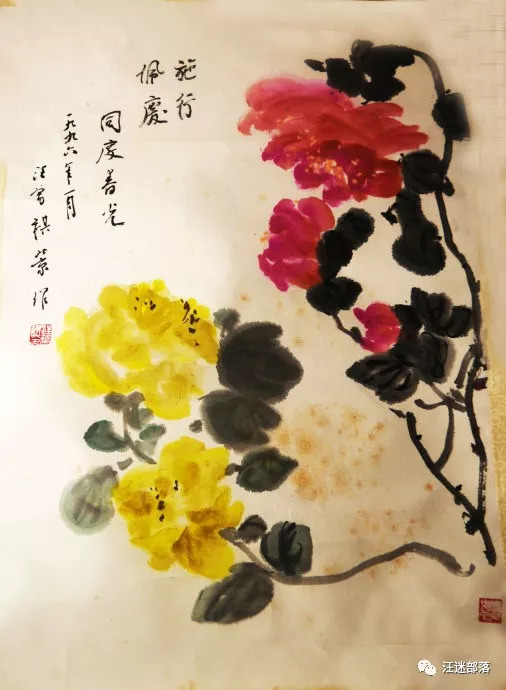 施行
佩慶
同度春光
一九九六年一月
汪曾祺 作
汪迷部落